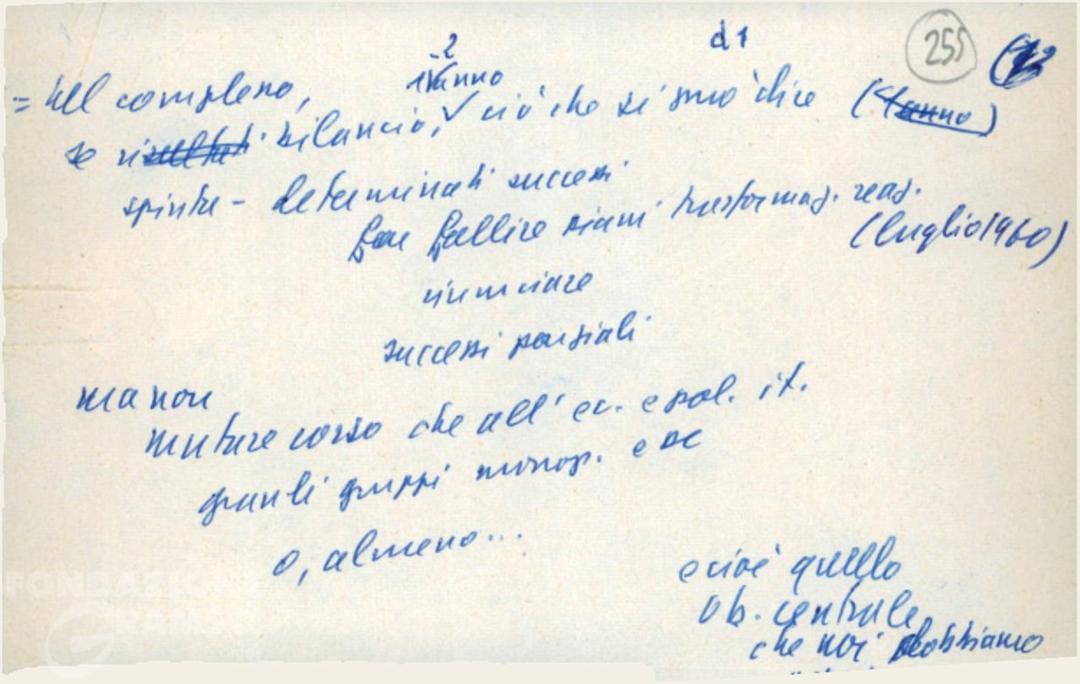 d1
255
= Nel complesso,
se bilancio, ciò che si può dire (1 anno)
spinte - determinati successi
far fallire piani trasformaz. reaz.
(luglio 1960)
rinunciare
successi parziali
ma non
mutare corso che all' ec. e pol. it.
grandi gruppi monop. e DC
o, almeno...
e cioè quello
ob. centrale
che noi dobbiamo